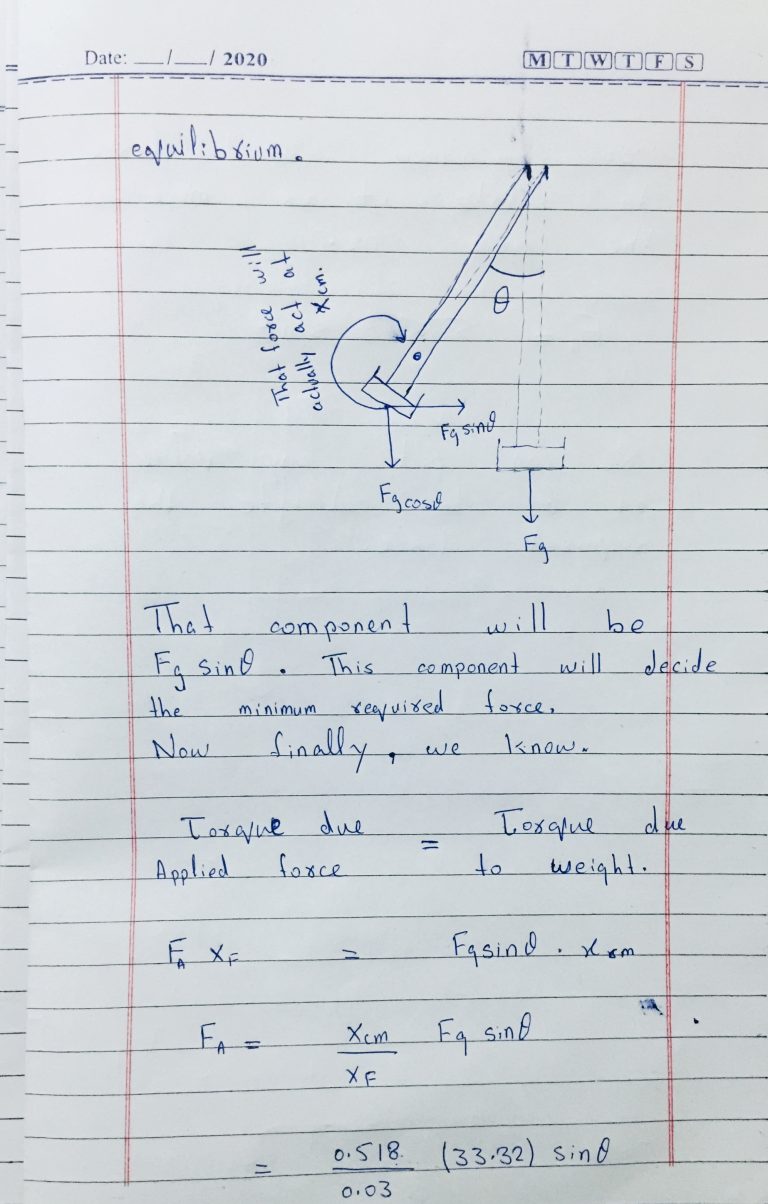 Date: __/__/ 2020
M T W T F S
equilibrium.
That force will
actually act at
xcm.
θ
Fg sinθ
Fg cosθ
Fg
That component will be
Fg sinθ. This component will decide
the minimum required force.
Now finally, we know.
Torque due = Torque due
Applied force to weight.
FA XF = Fg sinθ . xcm
FA = Xcm/XF Fg sinθ
= 0.518/0.03 (33.32) sinθ